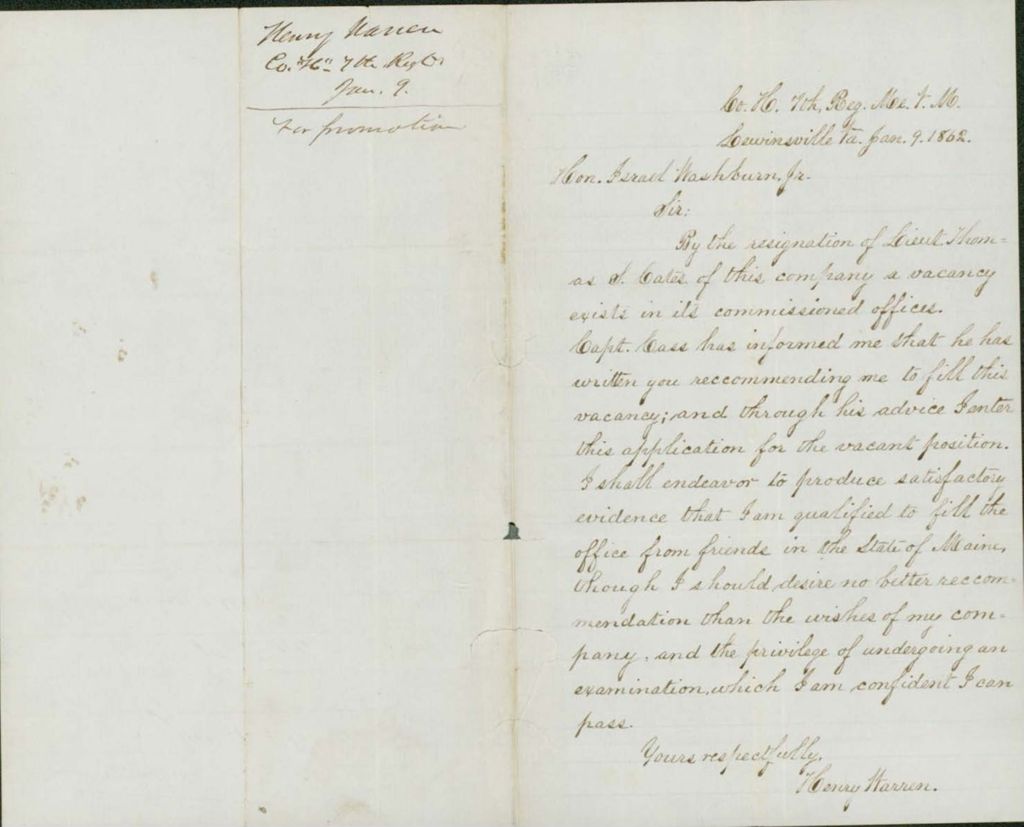 Henry Warren
Co. "H" 7th Regt.
Jan. 9.
For promotion
Co. H. 7th, Reg. Me. V. M.
Lewinsville Va. Jan. 9. 1862.
Hon. Israel Washburn, Jr.
Sir:
By the resignation of Lieut. Thom-
as S. Cates of this company a vacancy
exists in its commissioned offices.
Capt. Cass has informed me that he has
written you reccommending me to fill this
vacancy; and through his advice I enter
this application for the vacant position.
I shall endeavor to produce satisfactory
evidence that I am qualified to fill the
office from friends in the State of Maine,
though I should desire no better reccom-
mendation than the wishes of my com-
pany, and the privilege of undergoing an
examination, which I am confident I can
pass.
Yours respectfully,
Henry Warren.